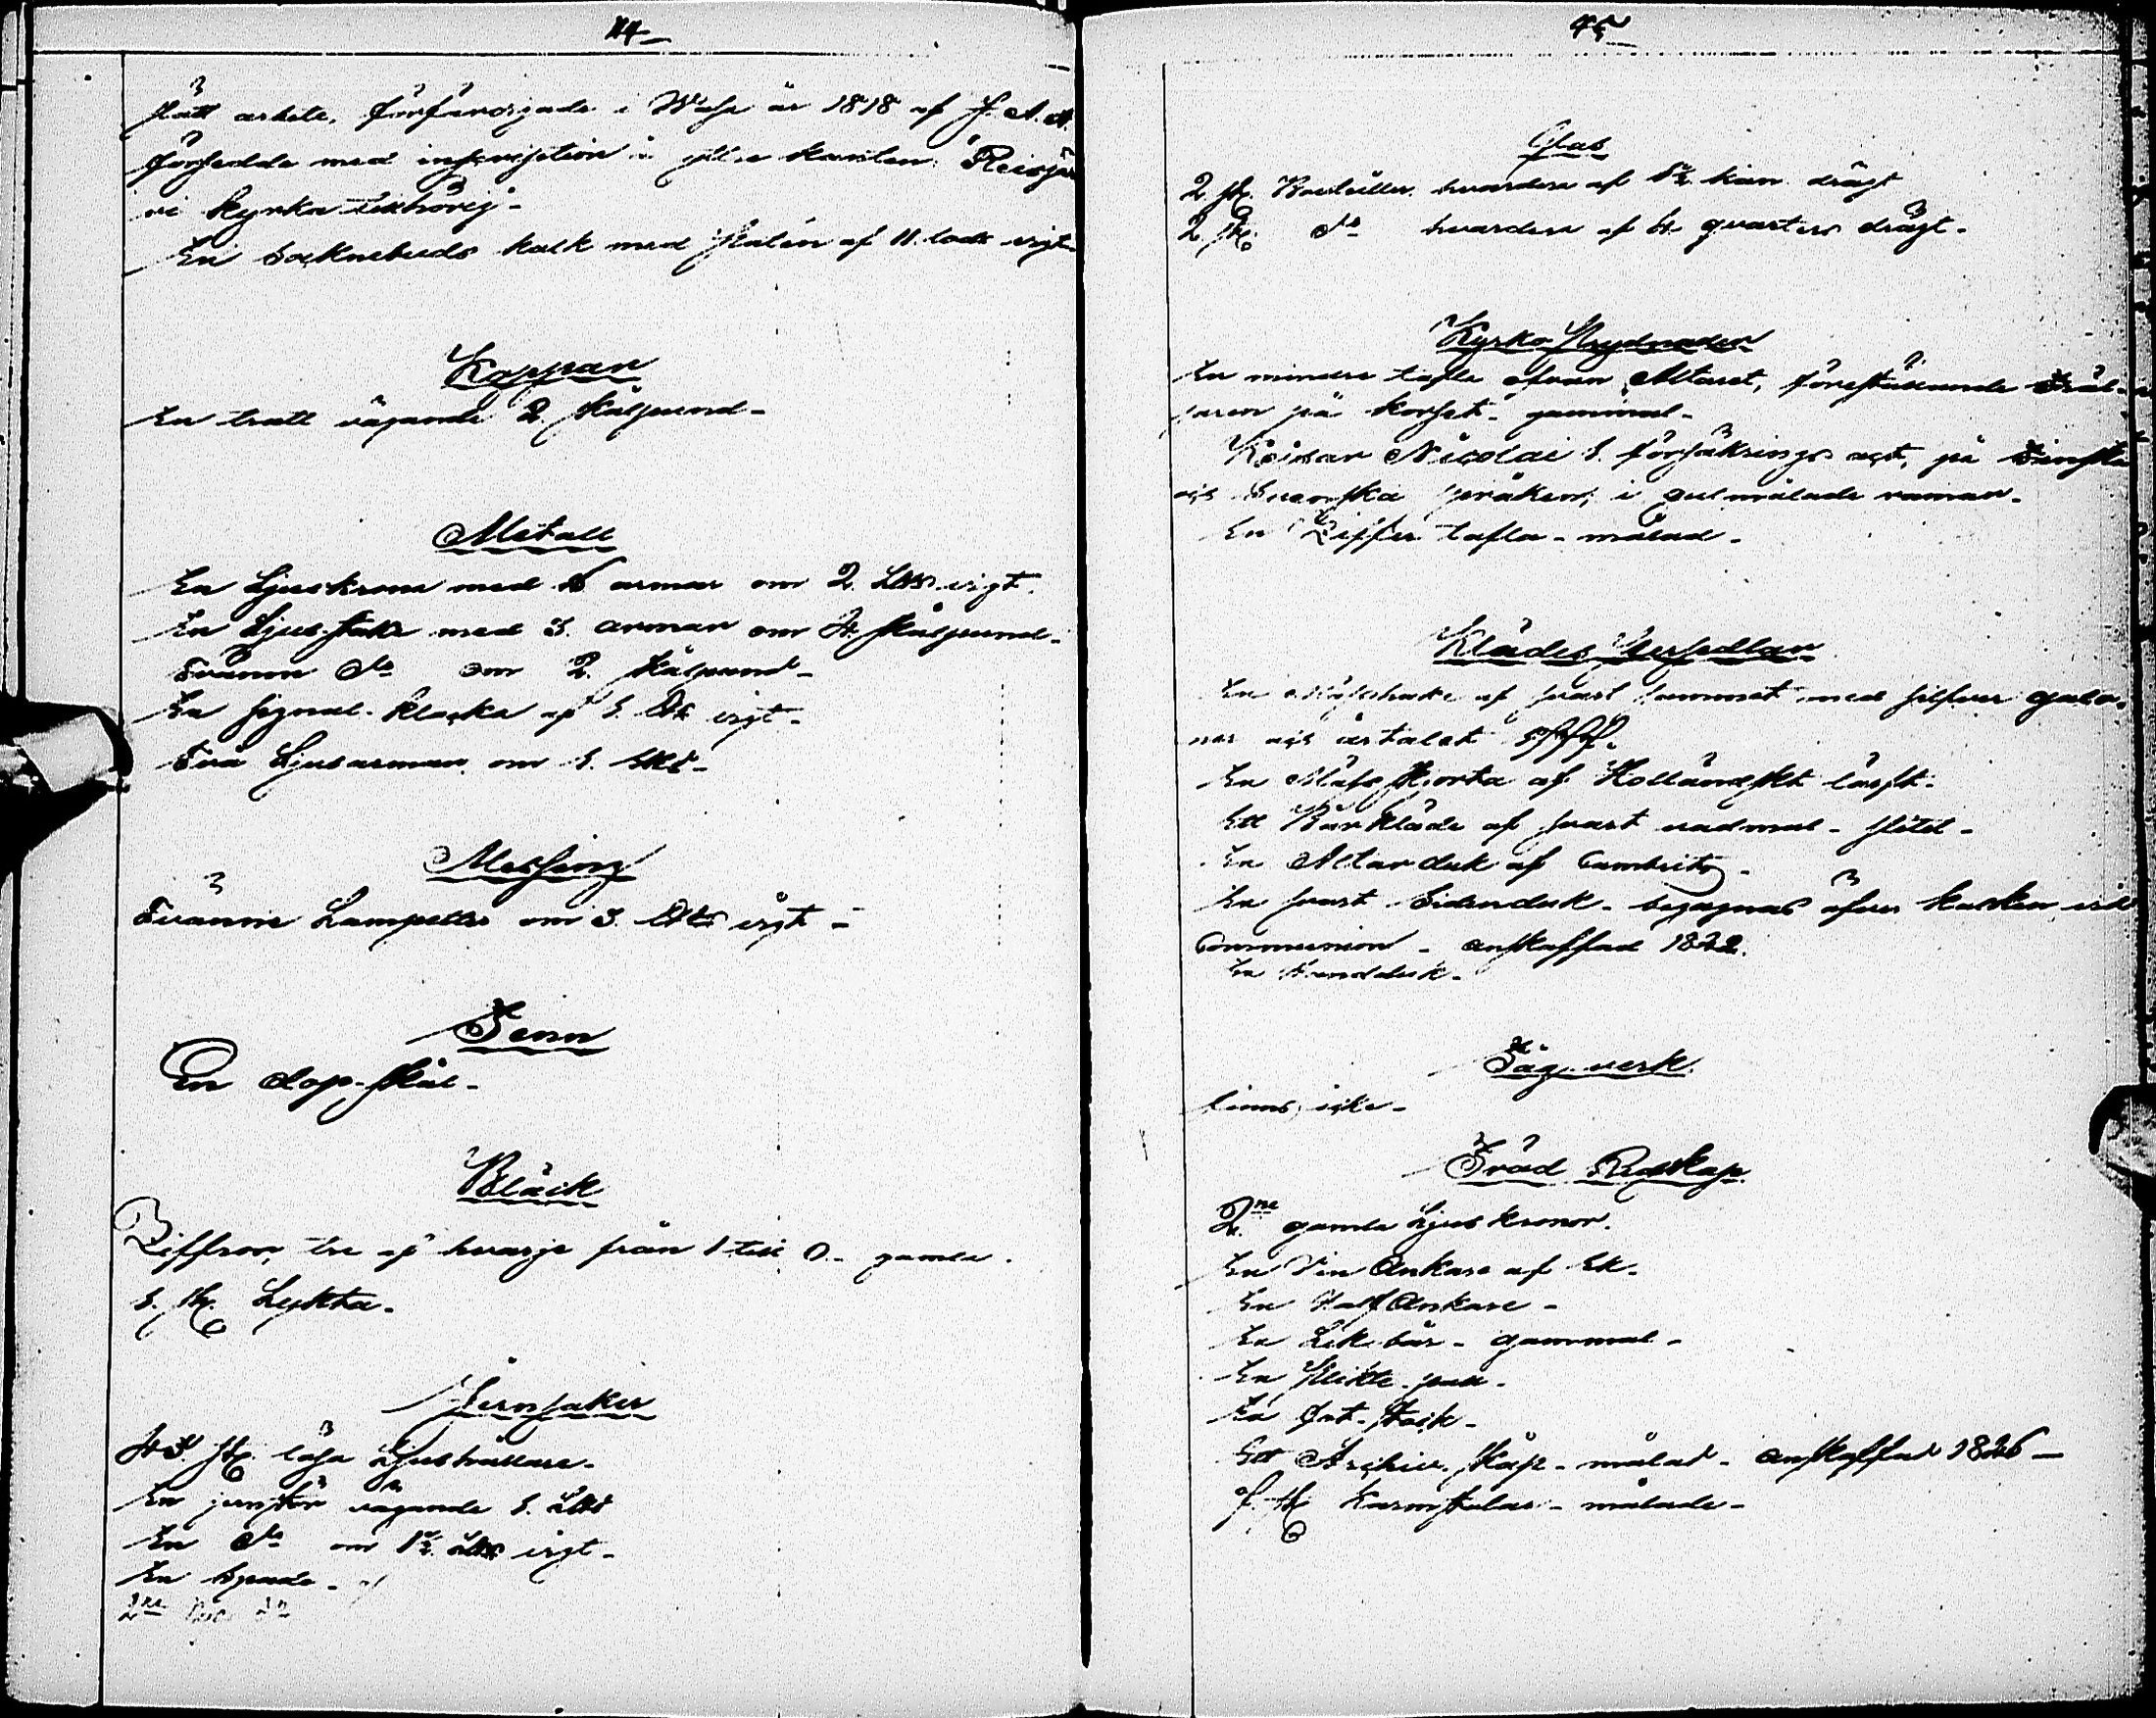 44
slätt arbete, förfärdigade i Wasa år 1818 af J. A. A.
försedde med inscription i yttre kanten: Reisjär
vi kyrka tillhörig.
En Socknebuds kalk med Patén af 11. lods vigt
Koppar
En tratt vägande 2. skålpund
Metall
En Ljuskrona med 6 armar om 2. L℔. vigt.
En Ljus-stake med 3. armar om 4. skålpund.
Tvänne do om 2. skålpund
En signal-klocka af 1. L℔ vigt.
Två Ljusarmar om 1. L℔
Messing
Tvänne Lampetter om 3. L℔ vigt
Tenn
En dop-skål
Bläck
Ziffror, tre af hvarje från 1 till 0. gamla.
1. st. Lykta.
Jernsaker
43. st. lösa Ljushållare.
En jernstör vägande 1. L℔
En do om 1½ L℔ vigt
En spade
2ne
45
Glas
2 st. Bouteiller hvardera af 1½ kan drägt
2 st. do hvardera af 4 quarters drägt.
Kyrko Prydnader
En mindre tafla ofvan Altaret, föreställande Fräl-
saren på korset, gammal.
Keisar Nicolai 1. försäkrings act, på Finska
och Svenska språken, i gulmålade ramar.
En Ziffer tafla målad.
Klädes Persedlar
En Mässhake af svart sammet med silfver galo-
ner och årtalet
En Mäss skjorta af Holländskt lärft.
Ett Bårkläde af svart vadmal slitet
En Altar duk af Cambrits
En svart Sidenduk begagnas öfver kalken vid
Communion anskaffad 1822.
En handduk.
Täg-verk
finns icke
Träd Redskap
2ne gamla Ljus kronor.
En Vin Ankare af Ek.
En Half Ankare
En Lik bår gammal
En
En fot-stock
Ett Archiv. skåp målat anskaffat 1826
st. Karmstolar målade